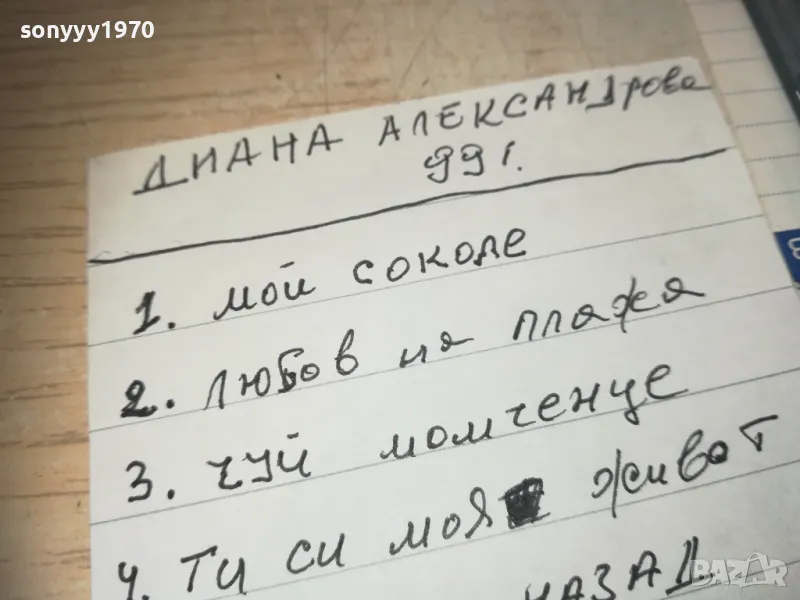 sonyyy1970
ДИАНА АЛЕКСАНДрова
99г.
1. мой соколе
2. любов на плажа
3. чуй момченце
4. ти си моя живот
НАЗАД
BAZAR